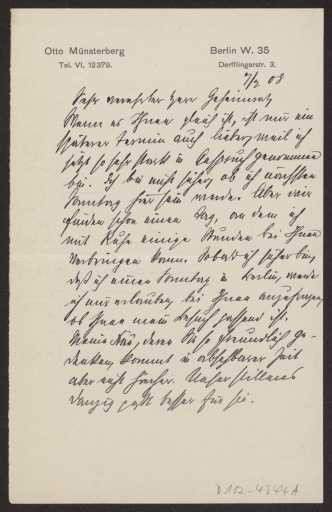 Otto Münsterberg
Berlin W. 35
Tel. VI, 12379.
Derfflingerstr. 3.
7/2 08
Sehr verehrter Herr Geheimrat,
Wenn es Ihnen gleich ist, ist mir ein
späterer Termin auch lieber, weil ich
jetzt so sehr stark in Anspruch genommen
bin. Ich bin nicht sicher, ob ich nächsten
Sonntag hier sein werde. Aber wir
finden schon einen Tag, an dem ich
mit Ruhe einige Stunden bei Ihnen
verbringen kann. Sobald ich sicher bin,
daß ich einen Sonntag in Berlin, werde
ich mir erlauben, bei Ihnen anzufragen,
ob Ihnen mein Besuch passend ist.
Meine Frau, deren Sie so freundlich ge-
denken, kommt in absehbarer Zeit
aber nicht hierher. Unser stilleres
Danzig paßt besser für sie.
D 102-4344 A